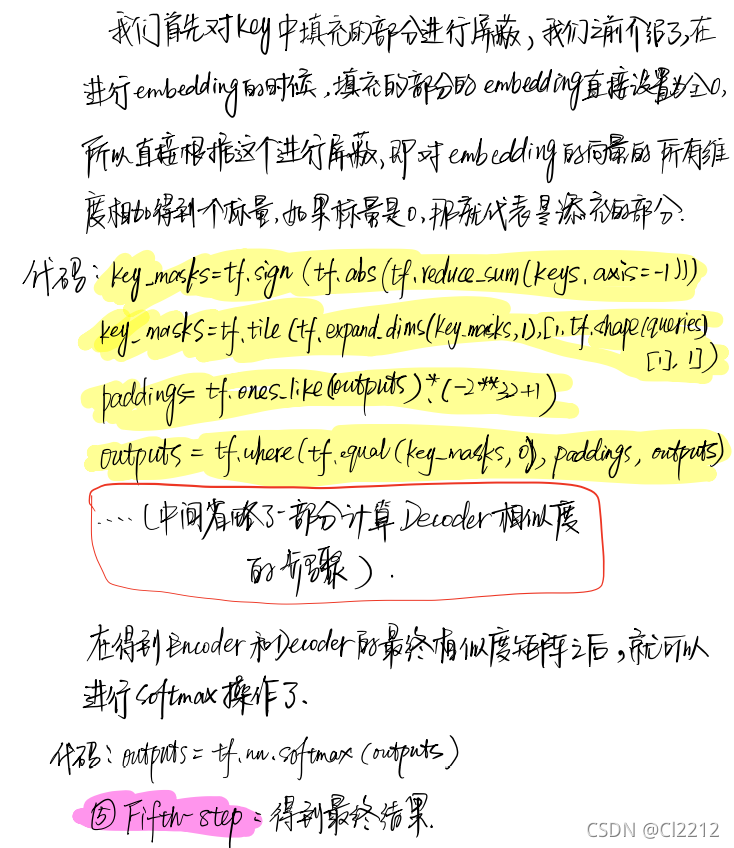 我们首先对key中填充的部分进行屏蔽，我们之前介绍了,在
进行embedding的时候，填充的部分的embedding直接设置为全0,
所以直接根据这个进行屏蔽,即对embedding的向量的所有维
度相加得到个标量,如果标量是0,那就代表是添充的部分.
代码：key_masks=tf.sign(tf.abs(tf.reduce_sum(keys,axis=-1)))
key_masks=tf.tile(tf.expand_dims(key_masks,1),[1,tf.shape(queries)
[1],1])
paddings=tf.ones_like(outputs)*(-2**32+1)
outputs=tf.where(tf.equal(key_masks,0),paddings,outputs)
....(中间省略了一部分计算Decoder相似度
的步骤).
在得到Encoder和Decoder的最终相似度矩阵之后，就可以
进行softmax操作了.
代码：outputs=tf.nn.softmax(outputs)
⑤Fifth-step：得到最终结果.
CSDN @Cl2212